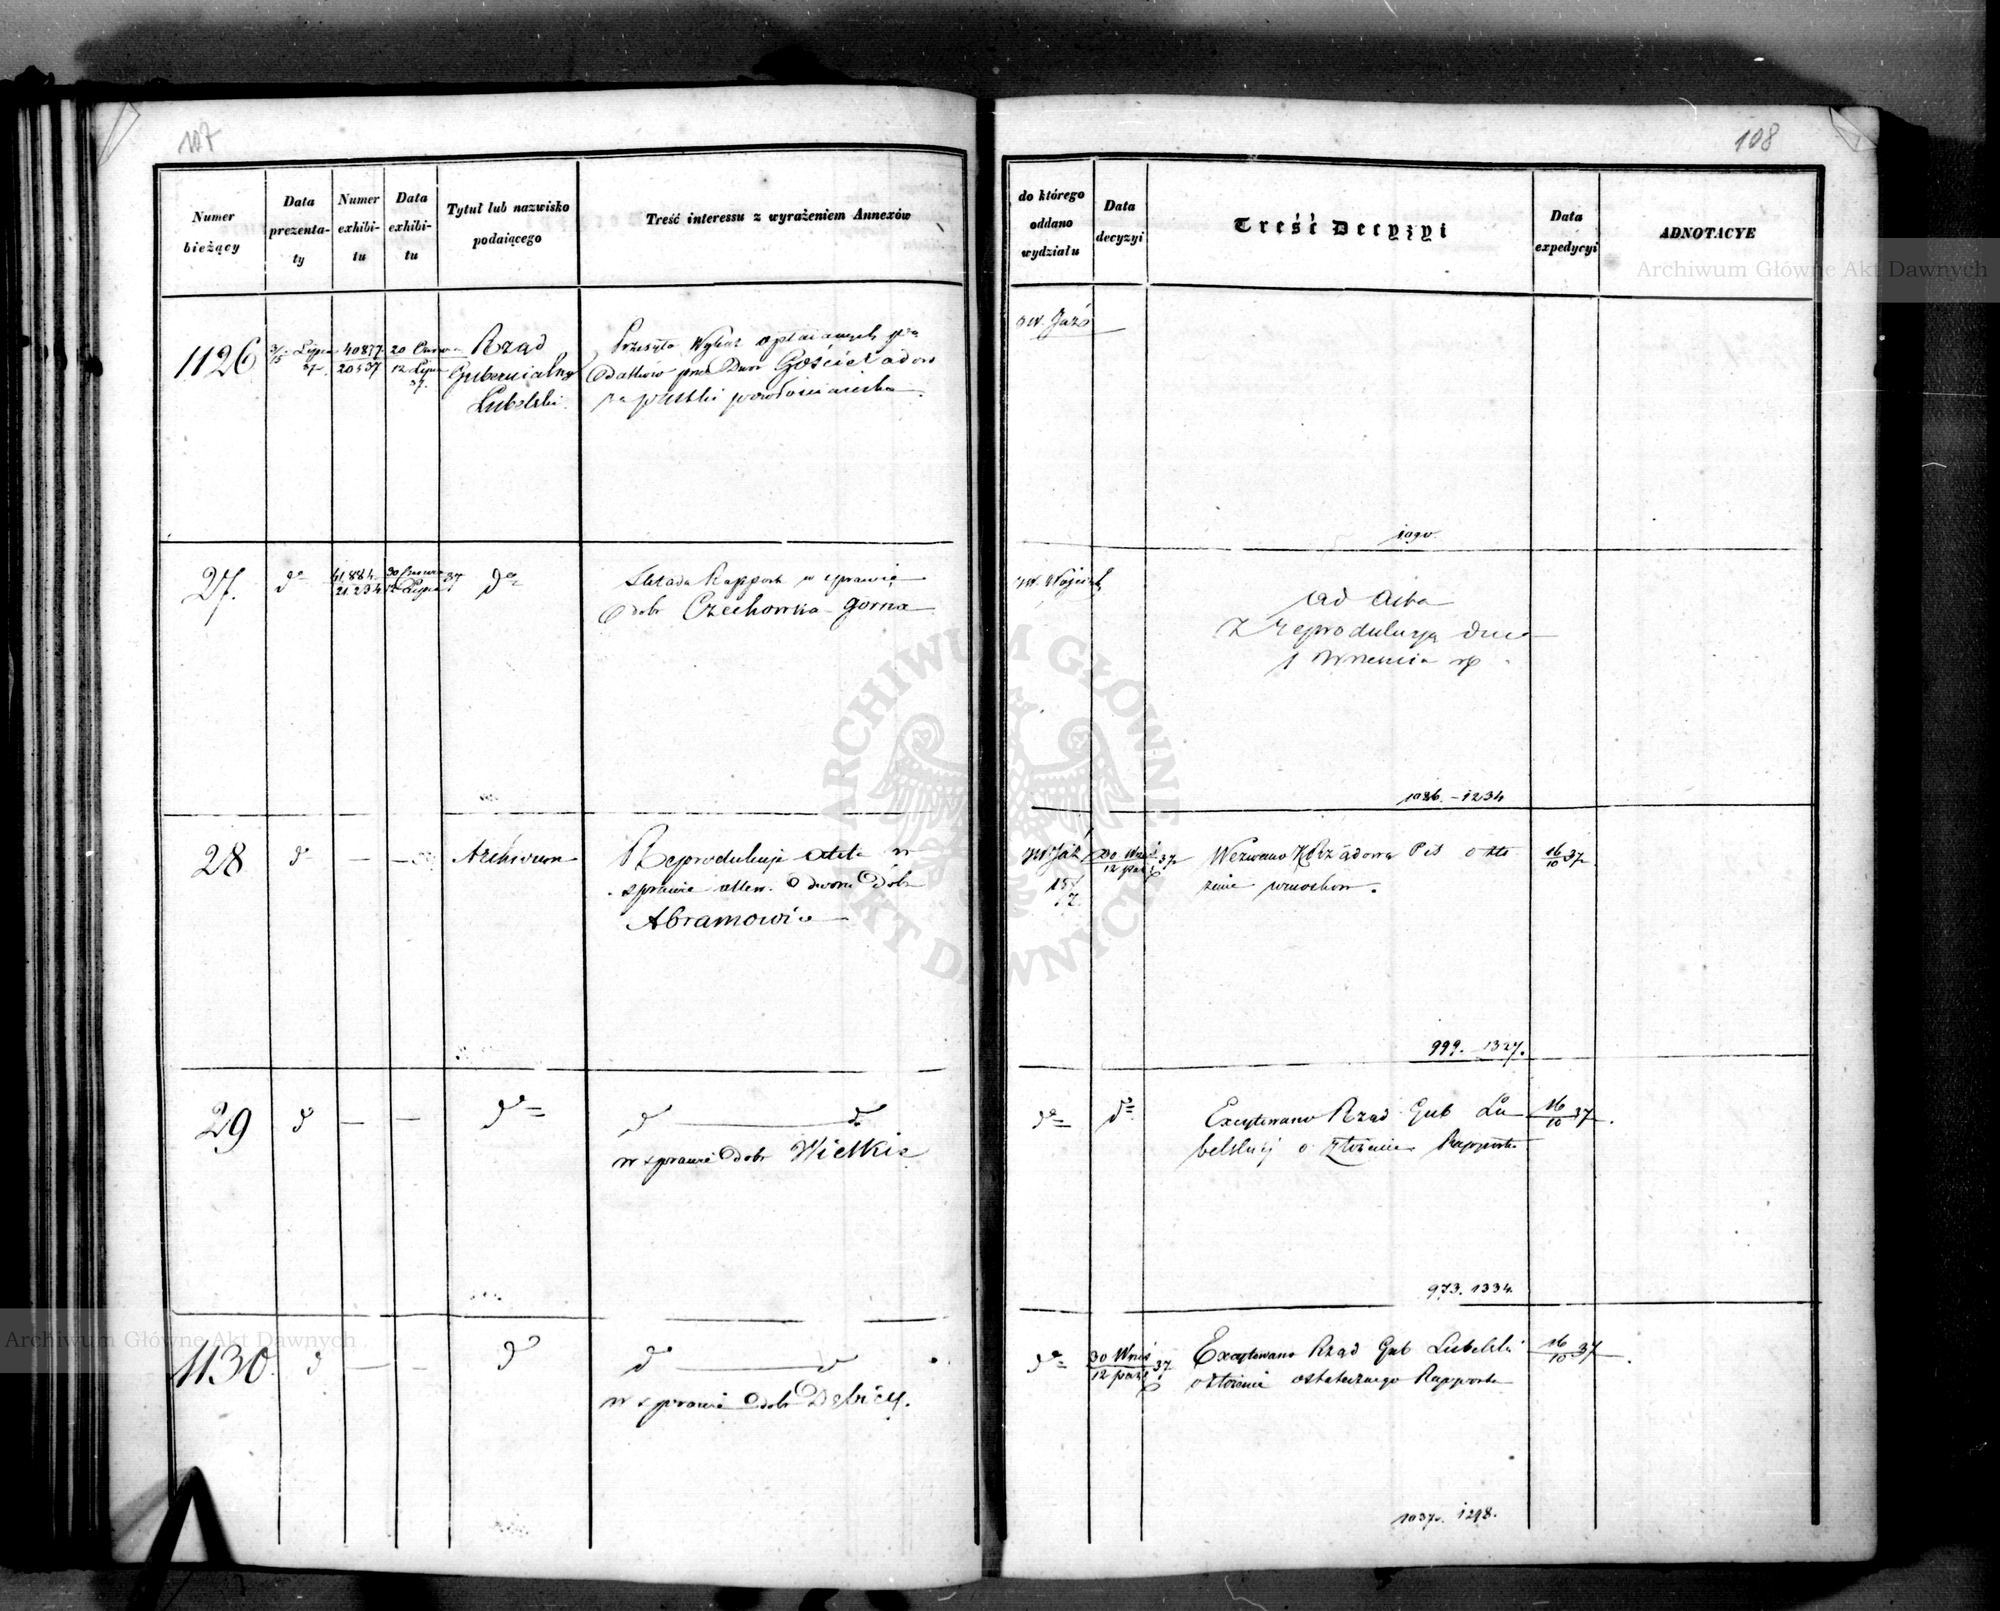 107
Numer
bieżący
Data
prezenta-
ty
Numer
exhibi-
tu
Data
exhibi-
tu
Tytuł lub nazwisko
podaiącego
Treść interessu z wyrażeniem Annexów
1126
Lipca
37
40877
20537
20
12 Lipca
37.
Rząd
Gubernialny
Lubelski.
Przesyła Wykaz opłacanych
przez Dwór Gościeradow
pustki
27.
do
41,884
21234
30
Lipca
37
do
Składa Rapport w sprawie
dobr Czechowka gorna
28
do
—
—
Archiwum
Reprodukuje akta w
sprawie dobr
Abramowice
29
do
—
—
do
do — do
w sprawie dobr Wielkie
1130.
do
—
—
do
do — do
w sprawie dobr Dębicy.
108
do którego
oddano
wydziału
Data
decyzyi
Treść Decyzyi
Data
expedycyi
ADNOTACYE
1090.
ad acta
z reprodukcyą dnia
1 Września
1086. - 1234
30 Wrześ
12 paź
37
Wezwano
wniosków.
16
10
37
999. - 1327.
do
do
Excytowano Rząd Gub Lu
belski o złożenie Rapportu
16
10
37
973. 1334.
do
30 Wrześ
12 paź
37
Excytowano Rząd Gub Lubelski
o złożenie ostatecznego Rapportu
16
10
37
1037. 1298.
Archiwum Główne Akt Dawnych
Archiwum Główne Akt Dawnych
ARCHIWUM GŁÓWNE AKT DAWNYCH